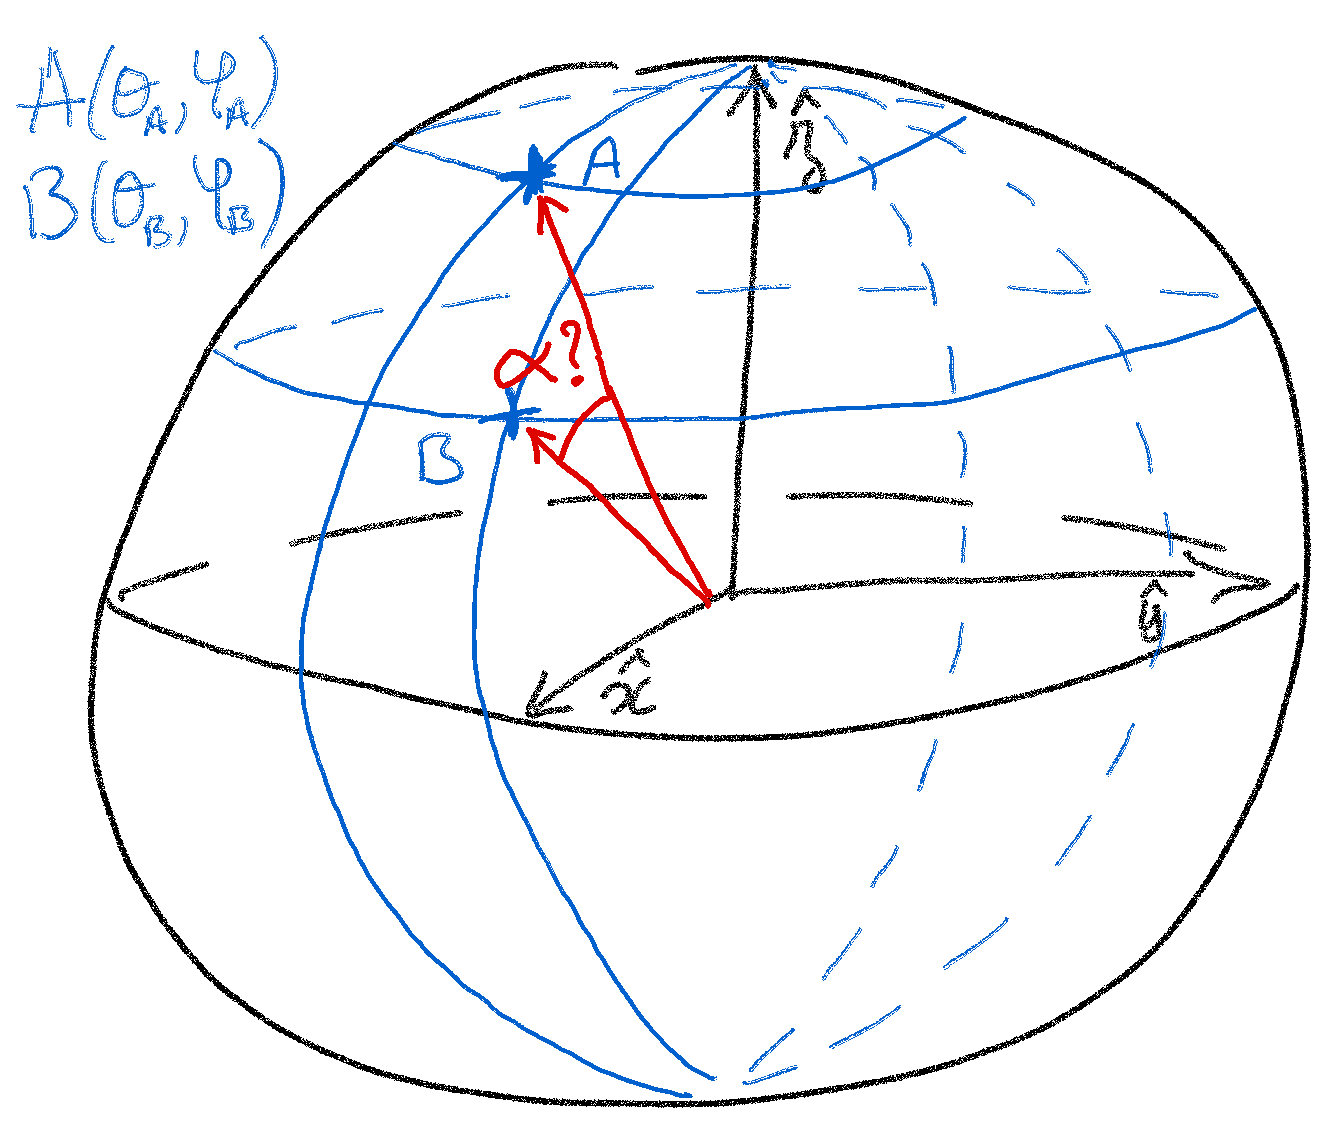 A(θ_A, φ_A)
B(θ_B, φ_B)
A
ẑ
α?
B
ŷ
x̂